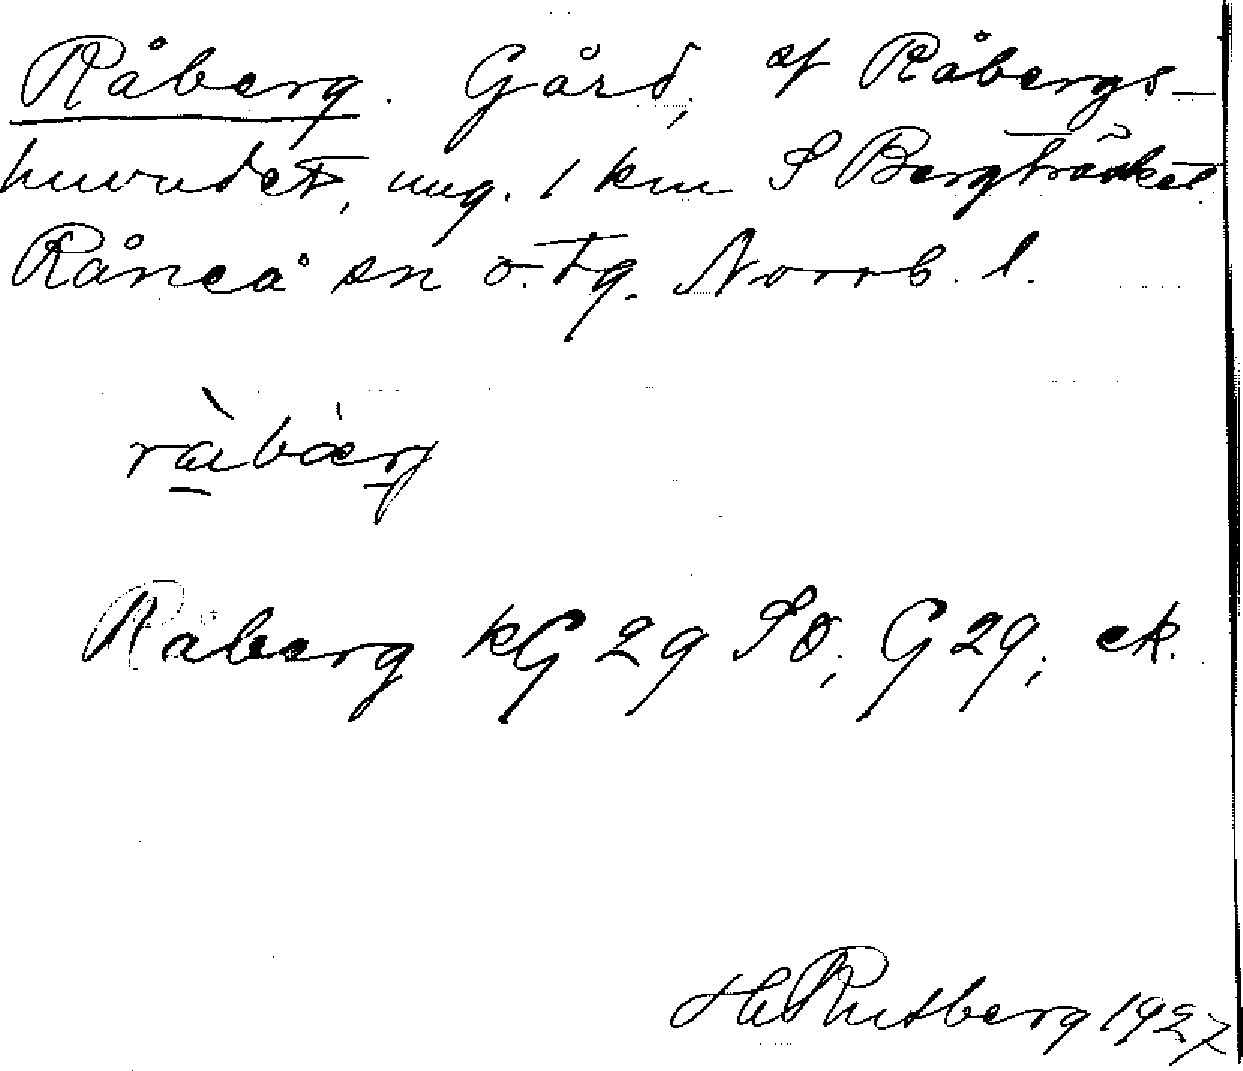 Råberg. Gård, af Råbergs-
huvudet, ung. 1 km S Bergträsket
Råneå sn o. tg. Norrb. l.
ràbærg
Råberg kG 29 SO; G 29; ek.
H Rutberg 1927